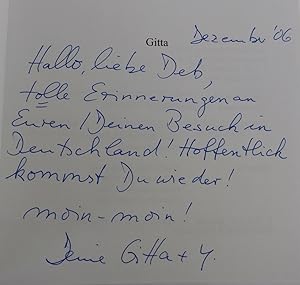 Dezember '06
Gitta
Hallo, liebe Deb,
tolle Erinnerungen an
Euren / Deinen Besuch in
Deutschland! Hoffentlich
kommst Du wieder!
moin-moin!
Deine Gitta + Y.